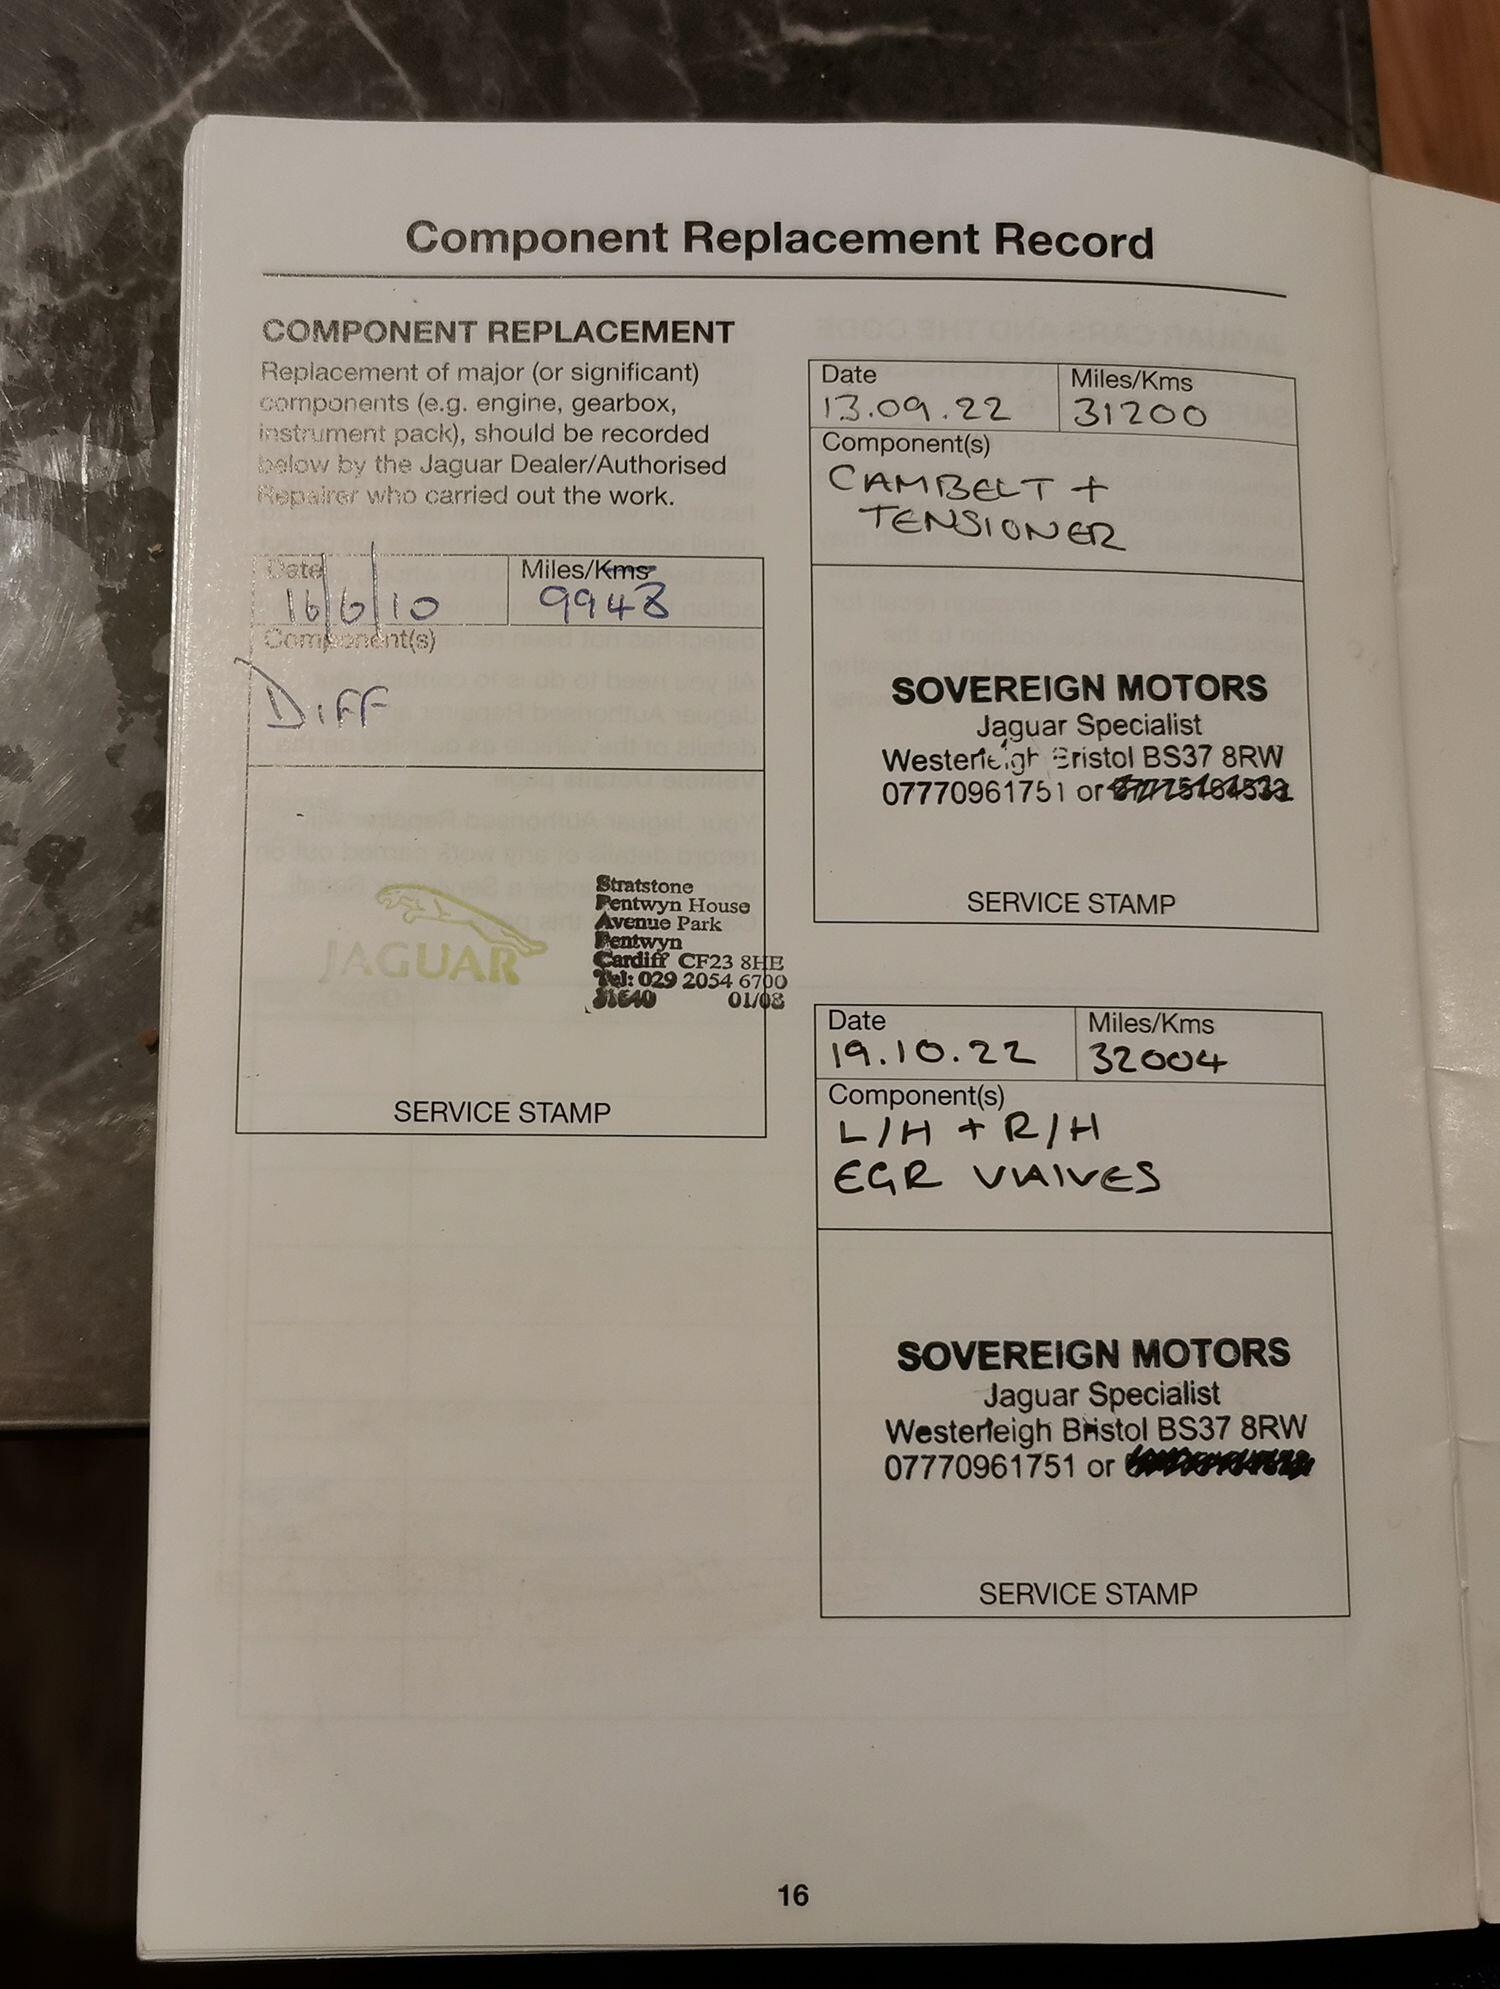 Component Replacement Record
COMPONENT REPLACEMENT
Replacement of major (or significant)
components (e.g. engine, gearbox,
instrument pack), should be recorded
below by the Jaguar Dealer/Authorised
Repairer who carried out the work.
Date Miles/Kms
16/6/10 9948
Component(s)
DIFF
JAGUAR
Stratstone
Pentwyn House
Avenue Park
Pentwyn
Cardiff CF23 8HE
Tel: 029 2054 6700
01/08
SERVICE STAMP
Date Miles/Kms
13.09.22 31200
Component(s)
CAMBELT +
TENSIONER
SOVEREIGN MOTORS
Jaguar Specialist
Westerleigh Bristol BS37 8RW
07770961751 or
SERVICE STAMP
Date Miles/Kms
19.10.22 32004
Component(s)
L/H + R/H
EGR VALVES
SOVEREIGN MOTORS
Jaguar Specialist
Westerleigh Bristol BS37 8RW
07770961751 or
SERVICE STAMP
16